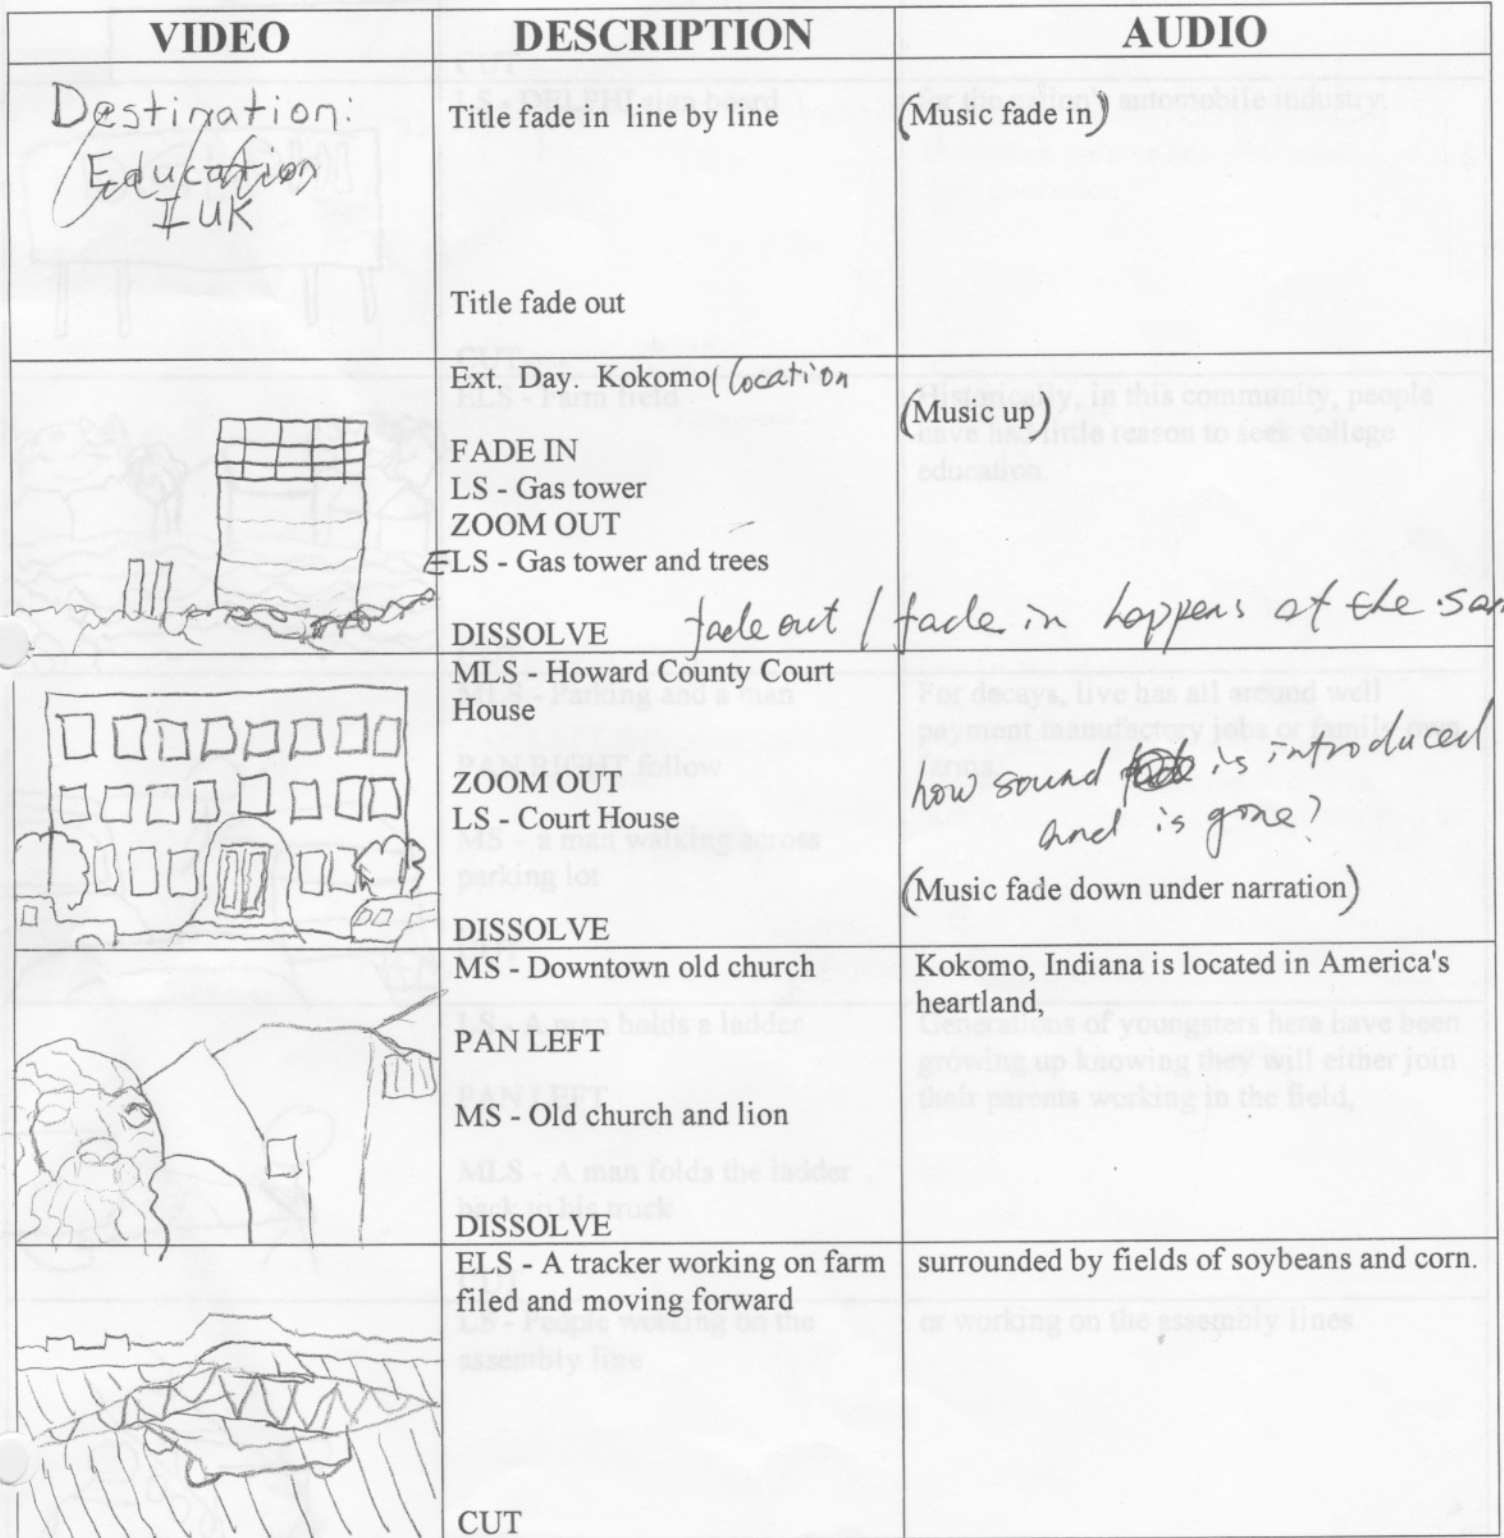 VIDEO DESCRIPTION AUDIO
Destination:
Education
IUK
Title fade in line by line
Title fade out
(Music fade in)
Ext. Day. Kokomo (location
FADE IN
LS - Gas tower
ZOOM OUT
ELS - Gas tower and trees
DISSOLVE
(Music up)
fade out / fade in happens at the
MLS - Howard County Court
House
ZOOM OUT
LS - Court House
DISSOLVE
how sound is introduced
and is gone?
(Music fade down under narration)
MS - Downtown old church
PAN LEFT
MS - Old church and lion
DISSOLVE
Kokomo, Indiana is located in America's
heartland,
ELS - A tracker working on farm
filed and moving forward
CUT
surrounded by fields of soybeans and corn.